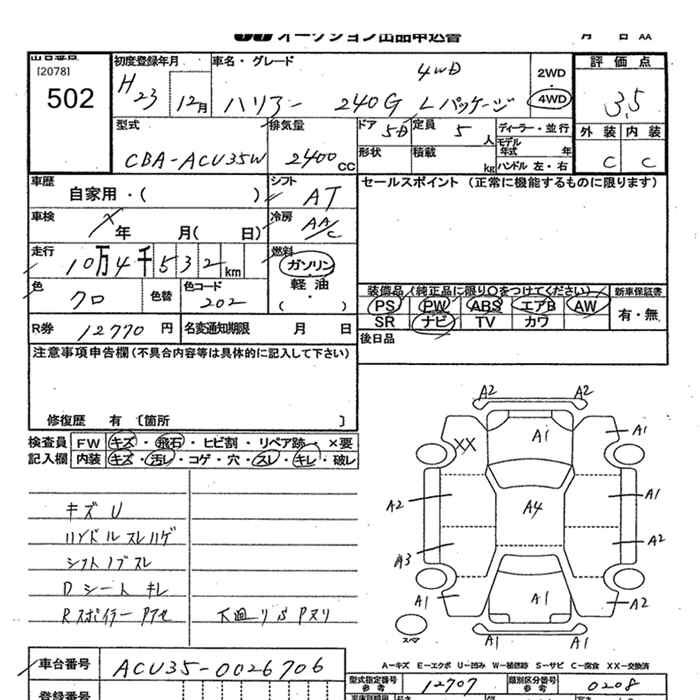 オークション出品申込書 月 日
出品番号
[2078]
502
初度登録年月
H 23 12月
車名・グレード
ハリアー 240G Lパッケージ 4WD
2WD
4WD
評価点
3.5
外装 内装
C C
型式
CBA-ACU35W
排気量
2400 CC
ドア 5D 定員 5 人
形状 積載 kg
ディーラー・並行
モデル年式 年
ハンドル 左・右
車歴 自家用・( )
シフト AT
車検 年 月( 日)
冷房 AA/C
走行 10万4千532km
燃料 ガソリン
軽油
・( )
色 クロ 色替 色コード 202
R券 12770 円 名変通知期限 月 日
セールスポイント (正常に機能するものに限ります)
装備品 (純正品に限り○をつけてください) 新車保証書
PS PW ABS エアB AW 有・無
SR ナビ TV カワ
後日品
注意事項申告欄(不具合内容等は具体的に記入して下さい)
修復歴 有 〔箇所 〕
検査員記入欄
FW キズ・飛石・ヒビ割・リペア跡・×要
内装 キズ・汚レ・コゲ・穴・スレ・キレ・破レ
キズ U
ハンドル スレ ハゲ
シフトノブ スレ
D シート キレ
Rスポイラー アセ 下廻り S
A2 A2
XX A1 A1
A2 A4 A1
A3 A2
A1 A1 A2
A1 A1
スペア
A-キズ E-エクボ U-凹み W-補修跡 S-サビ C-腐食 XX-交換済
車台番号 ACU35-0026706
型式指定番号 参考 12707 類別区分番号 参考 0208
登録番号